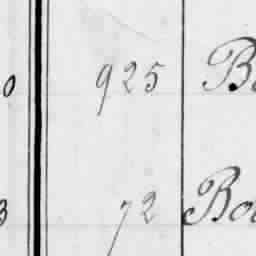 0 925 B
3 72 Bo